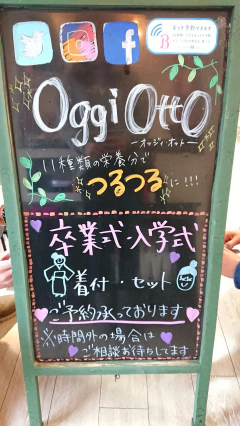 Oggi Otto
－オッジィ・オット－
11種類の栄養分で
つるつるに!!!
卒業式・入学式
着付・セット
ご予約承っております
※時間外の場合は
ご相談お待ちしてます